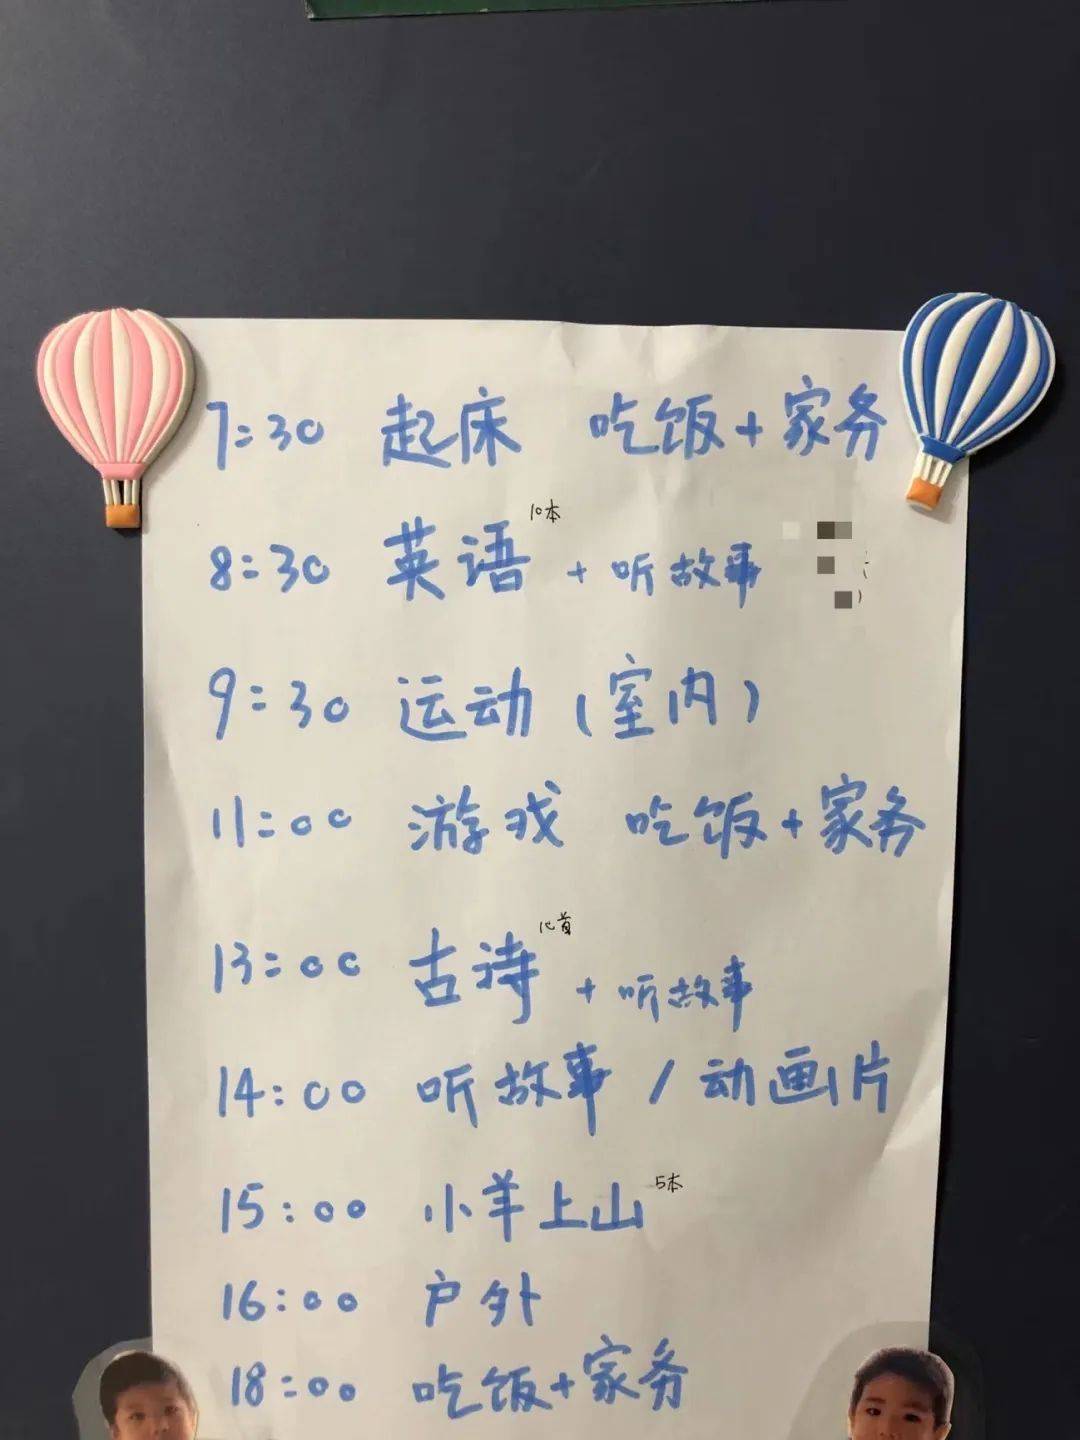 7:30 起床 吃饭+家务
8:30 英语 10本 + 听故事
9:30 运动(室内)
11:00 游戏 吃饭+家务
13:00 古诗 10首 + 听故事
14:00 听故事/动画片
15:00 小羊上山 5本
16:00 户外
18:00 吃饭+家务